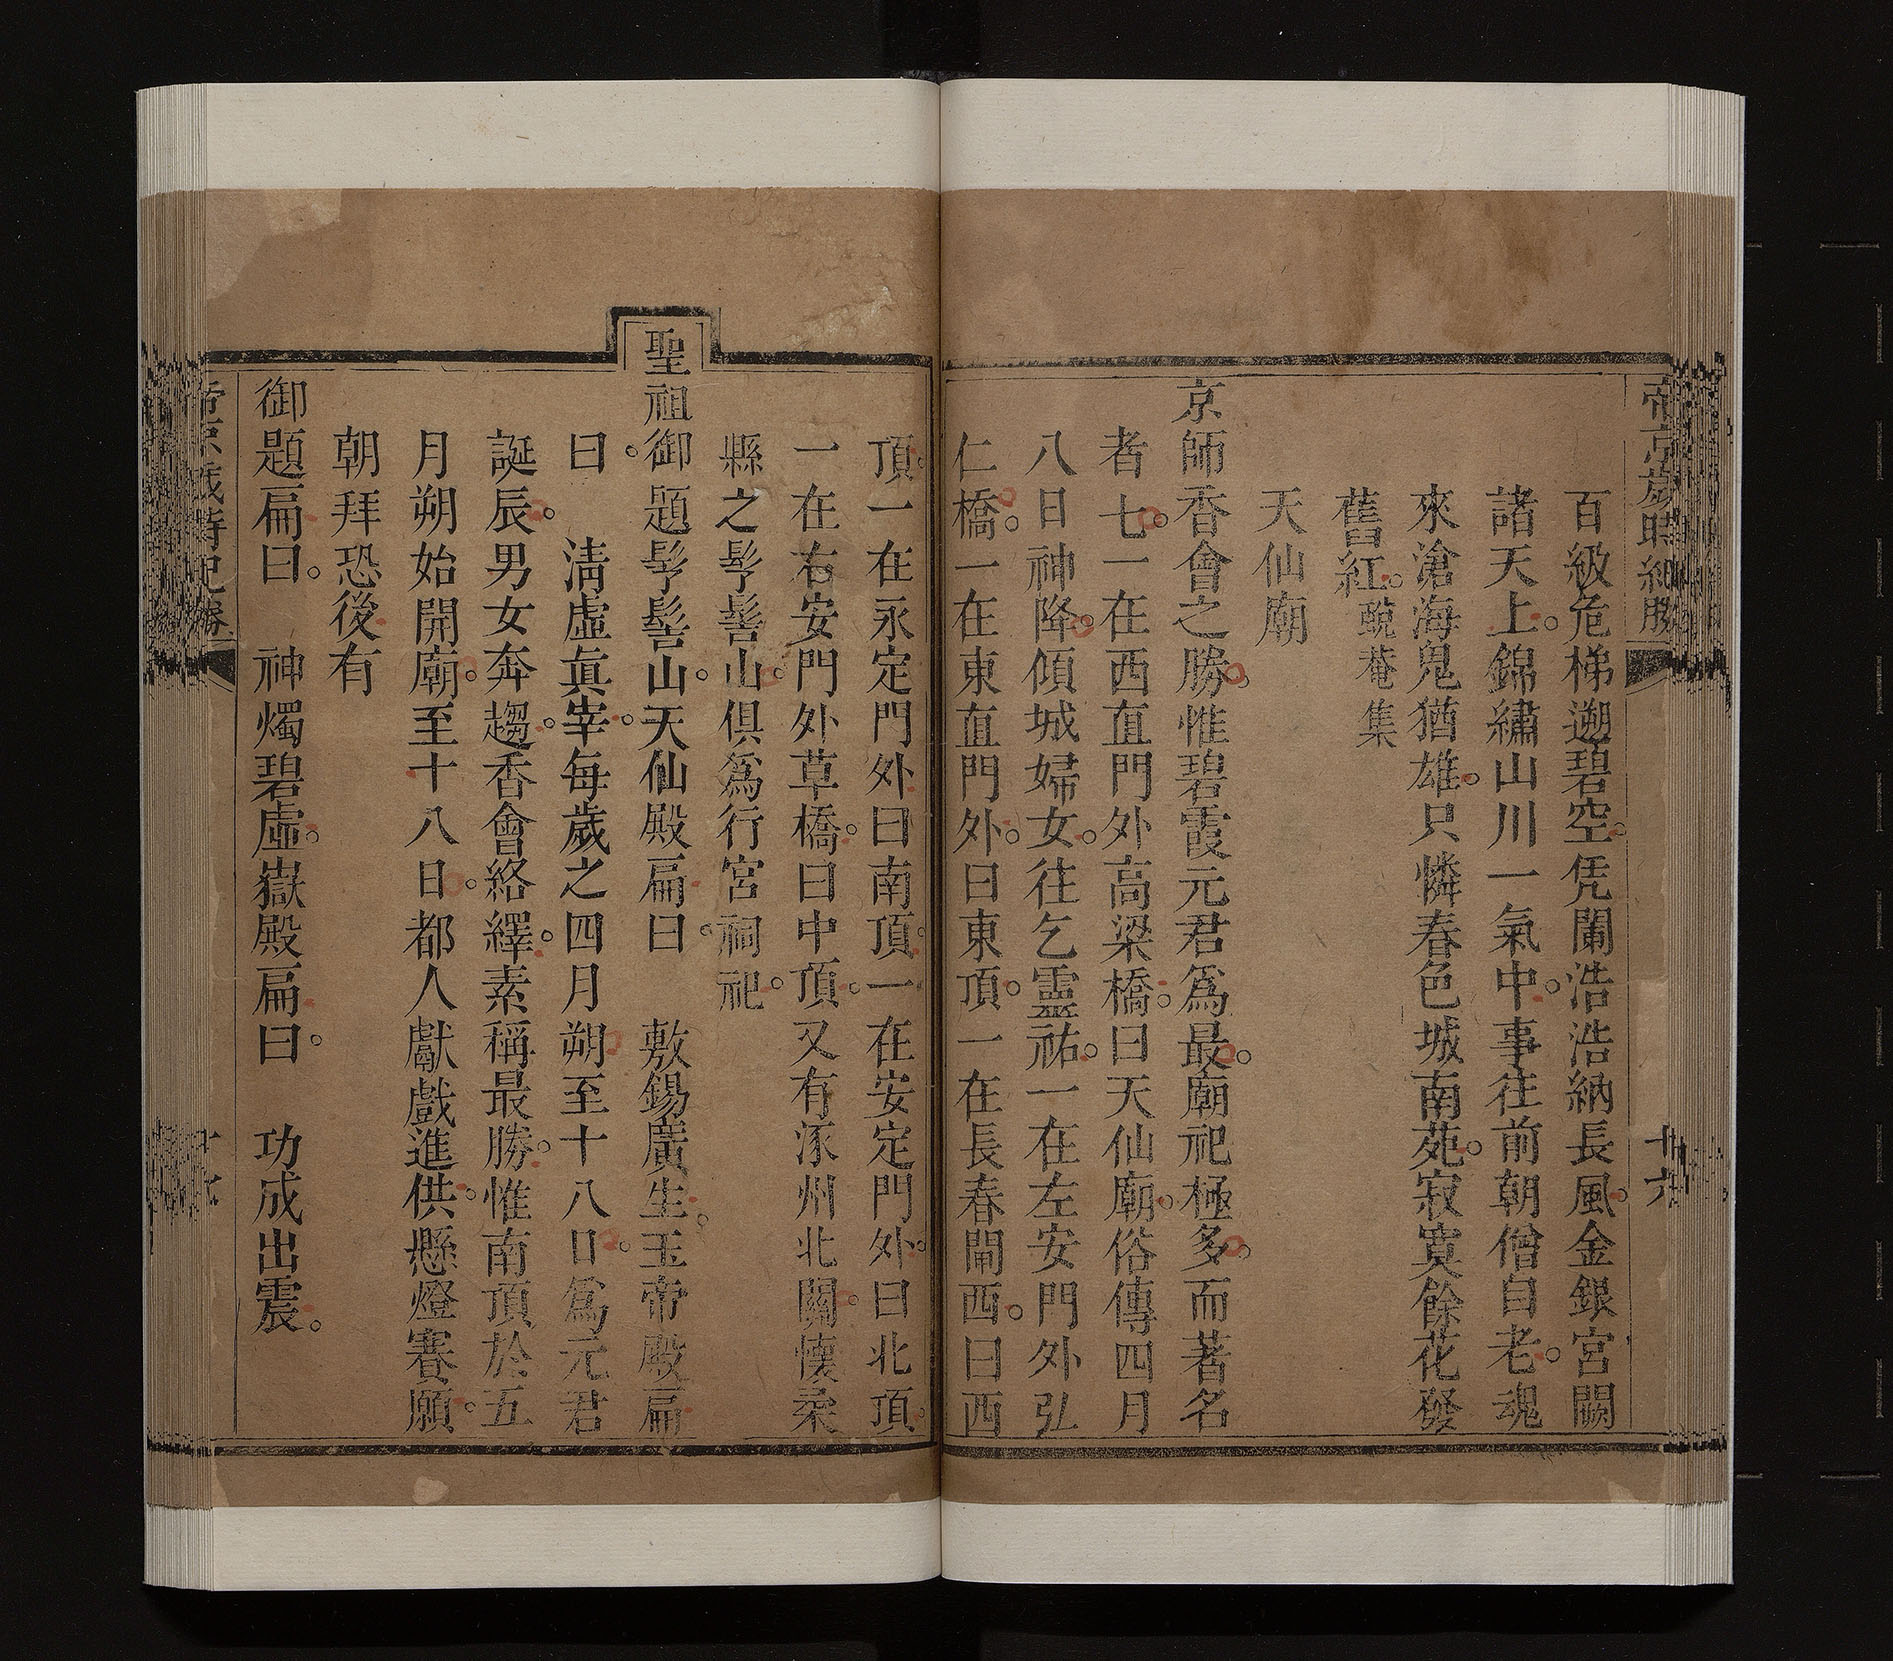 帝京歲時紀勝
卅六
百級危梯遡碧空。凭闌浩浩納長風。金銀宮闕
諸天上。錦繡山川一氣中。事往前朝僧自老。魂
來滄海鬼猶雄。只憐春色城南苑。寂寞餘花發
舊紅。蛻菴集
天仙廟
京師香會之勝。惟碧霞元君爲最。廟祀極多。而著名
者七。一在西直門外高梁橋。曰天仙廟。俗傳四月
八日神降。傾城婦女。往乞靈祐。一在左安門外弘
仁橋。一在東直門外。曰東頂。一在長春閘西。曰西
頂。一在永定門外。曰南頂。一在安定門外。曰北頂。
一在右安門外草橋。曰中頂。又有涿州北關。懷柔
縣之髩髻山。俱爲行宮祠祀。
聖祖御題髩髻山。天仙殿扁曰。敷錫廣生。玉帝殿扁
曰。清虛眞宰。每歲之四月朔至十八日。爲元君
誕辰。男女奔趨。香會絡繹。素稱最勝。惟南頂於五
月朔始開廟。至十八日。都人獻戲進供。懸燈賽願。
朝拜恐後。有
御題扁曰。神燭碧虛。嶽殿扁曰。功成出震。
帝京歲時紀勝